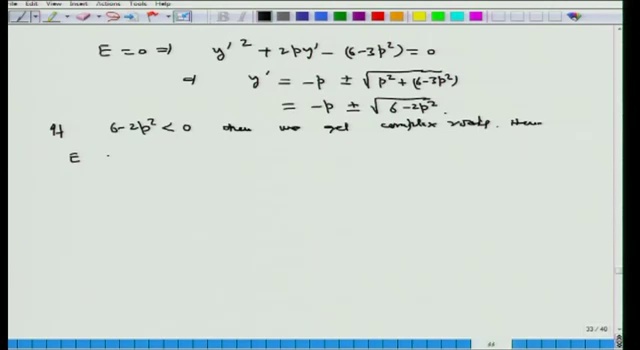 Edit View Insert Actions Tools Help
E = 0 ⇒ y'² + 2py' - (6-3p²) = 0
⇒ y' = -p ± √(p² + (6-3p²))
= -p ± √(6-2p²).
If 6-2p² < 0 then we get complex roots. Then
E
33 / 40